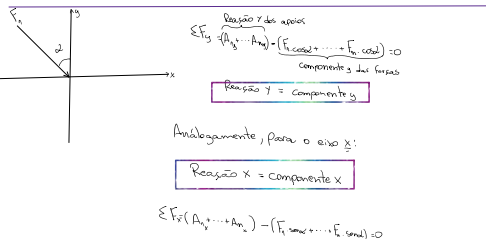 Fₙ
y
α
x
Reação Y dos apoios
ΣF_y = (A_{1y} + ... A_{ny}) - (F₁.cosα + ..... + Fₙ.cosα) = 0
componente y das forças
Reação Y = componente y
Análogamente, para o eixo x:
Reação X = componente x
ΣF_x = (A_{1x} + ... + A_{nx}) - (F₁.senα + ..... + Fₙ.senα) = 0